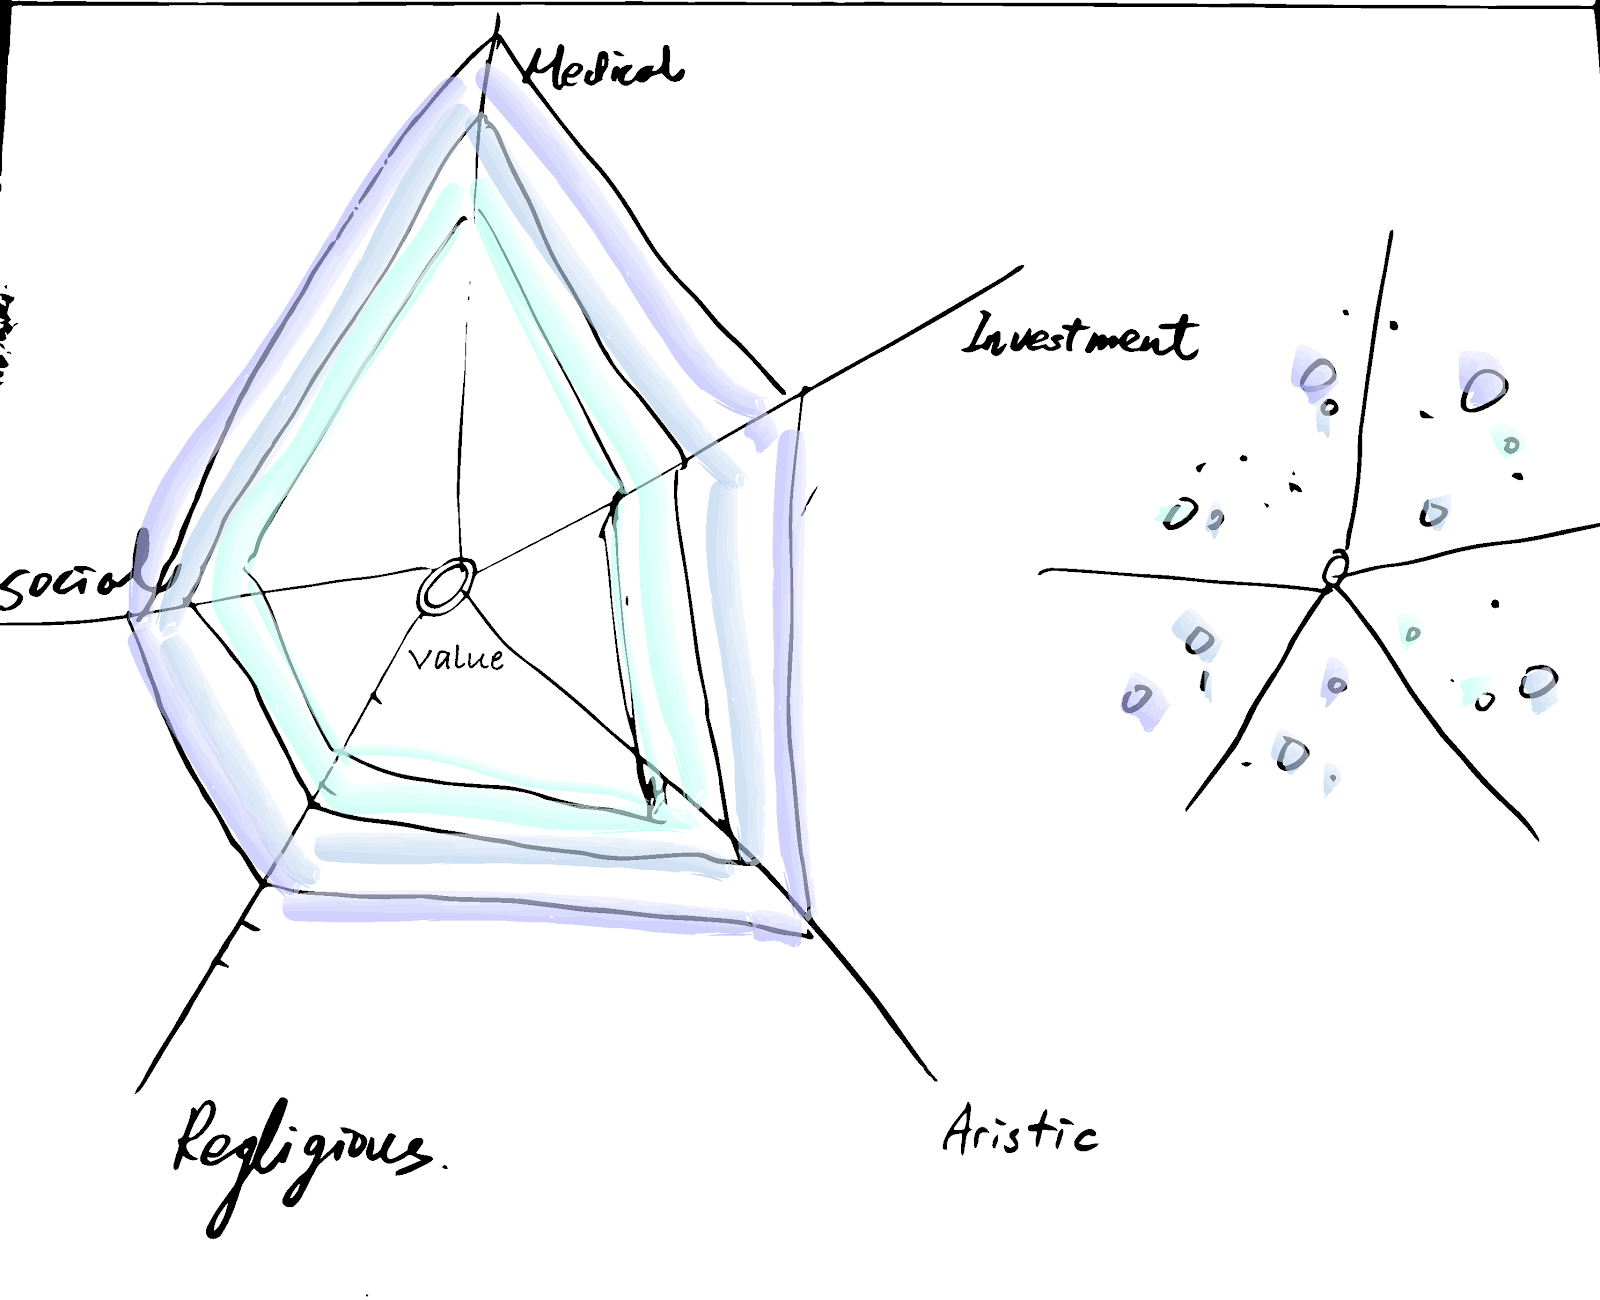 Medical
Investment
social
value
Regligious.
Aristic